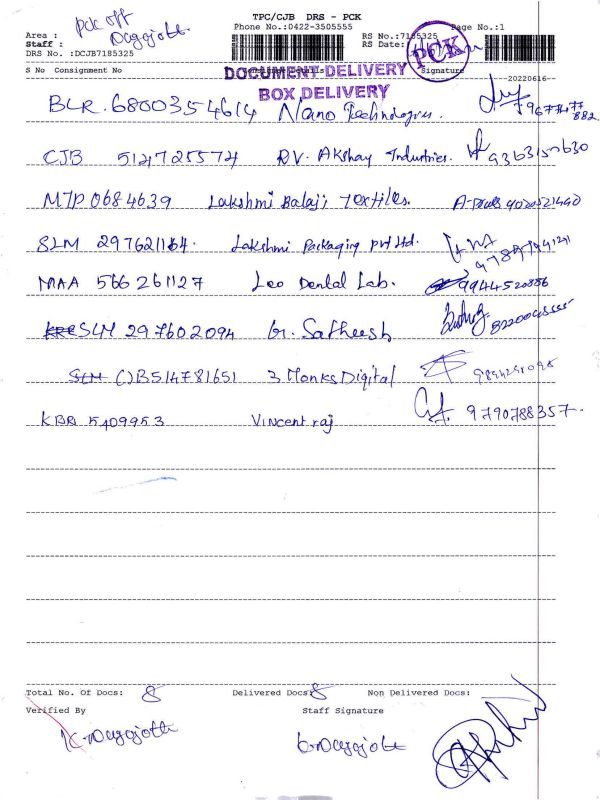 TPC/CJB DRS - PCK
pck off
Phone No.:0422-3505555 Page No.:1
Area :
Staff :
RS No.:7185325
DRS No. :DCJB7185325
RS Date:
PCK
S No Consignment No Signature
DOCUMENT DELIVERY
BOX DELIVERY
20220616
BLR. 6800354614 Nano Technologies.
CJB 514725574 R.V. Akshay Industries. 9363150630
MTP 0684639 Lakshmi Balaji Textiles.
SLM 297621164. Lakshmi Packaging pvt ltd.
MAA 566261127 Leo Dental Lab. 9944520886
SLM 297602094 G. Satheesh
CJB514781651 3 Monks Digital
KBR 5409953 Vincent raj 9790788357.
Total No. Of Docs: 8 Delivered Docs: 8 Non Delivered Docs:
Verified By Staff Signature